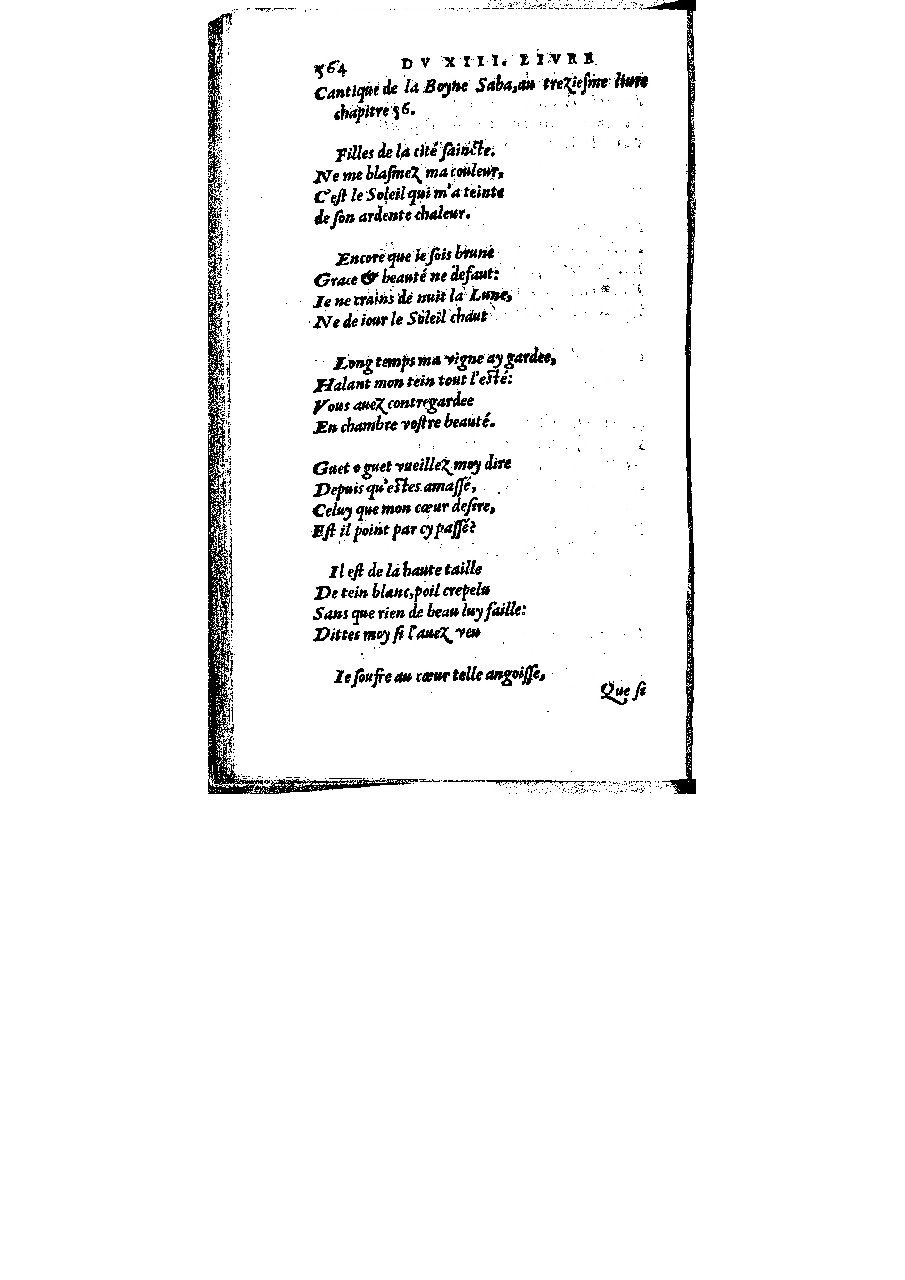 564 DV XIII. LIVRE
Cantique de la Boyne Saba, au treziesme liure
chapitre 56.
Filles de la cité saincte.
Ne me blasmez ma couleur,
C'est le Soleil qui m'a teinte
de son ardente chaleur.
Encore que ie sois brune
Grace & beauté ne defaut:
Ie ne crains de nuit la Lune,
Ne de iour le Soleil chaut
Long temps ma vigne ay gardee,
Halant mon tein tout l'esté:
Vous auez contregardee
En chambre vostre beauté.
Guet o guet vueillez moy dire
Depuis qu'estes amassé,
Celuy que mon cœur desire,
Est il point par cy passé?
Il est de la haute taille
De tein blanc, poil crepelu
Sans que rien de beau luy faille:
Dittes moy si l'auez veu
Ie soufre au cœur telle angoisse,
Que si